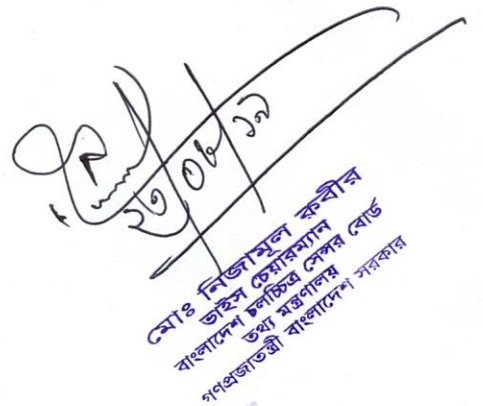 ২৩/০৮/১৯
মোঃ নিজামূল কবীর
ভাইস চেয়ারম্যান
বাংলাদেশ চলচ্চিত্র সেন্সর বোর্ড
তথ্য মন্ত্রণালয়
গণপ্রজাতন্ত্রী বাংলাদেশ সরকার